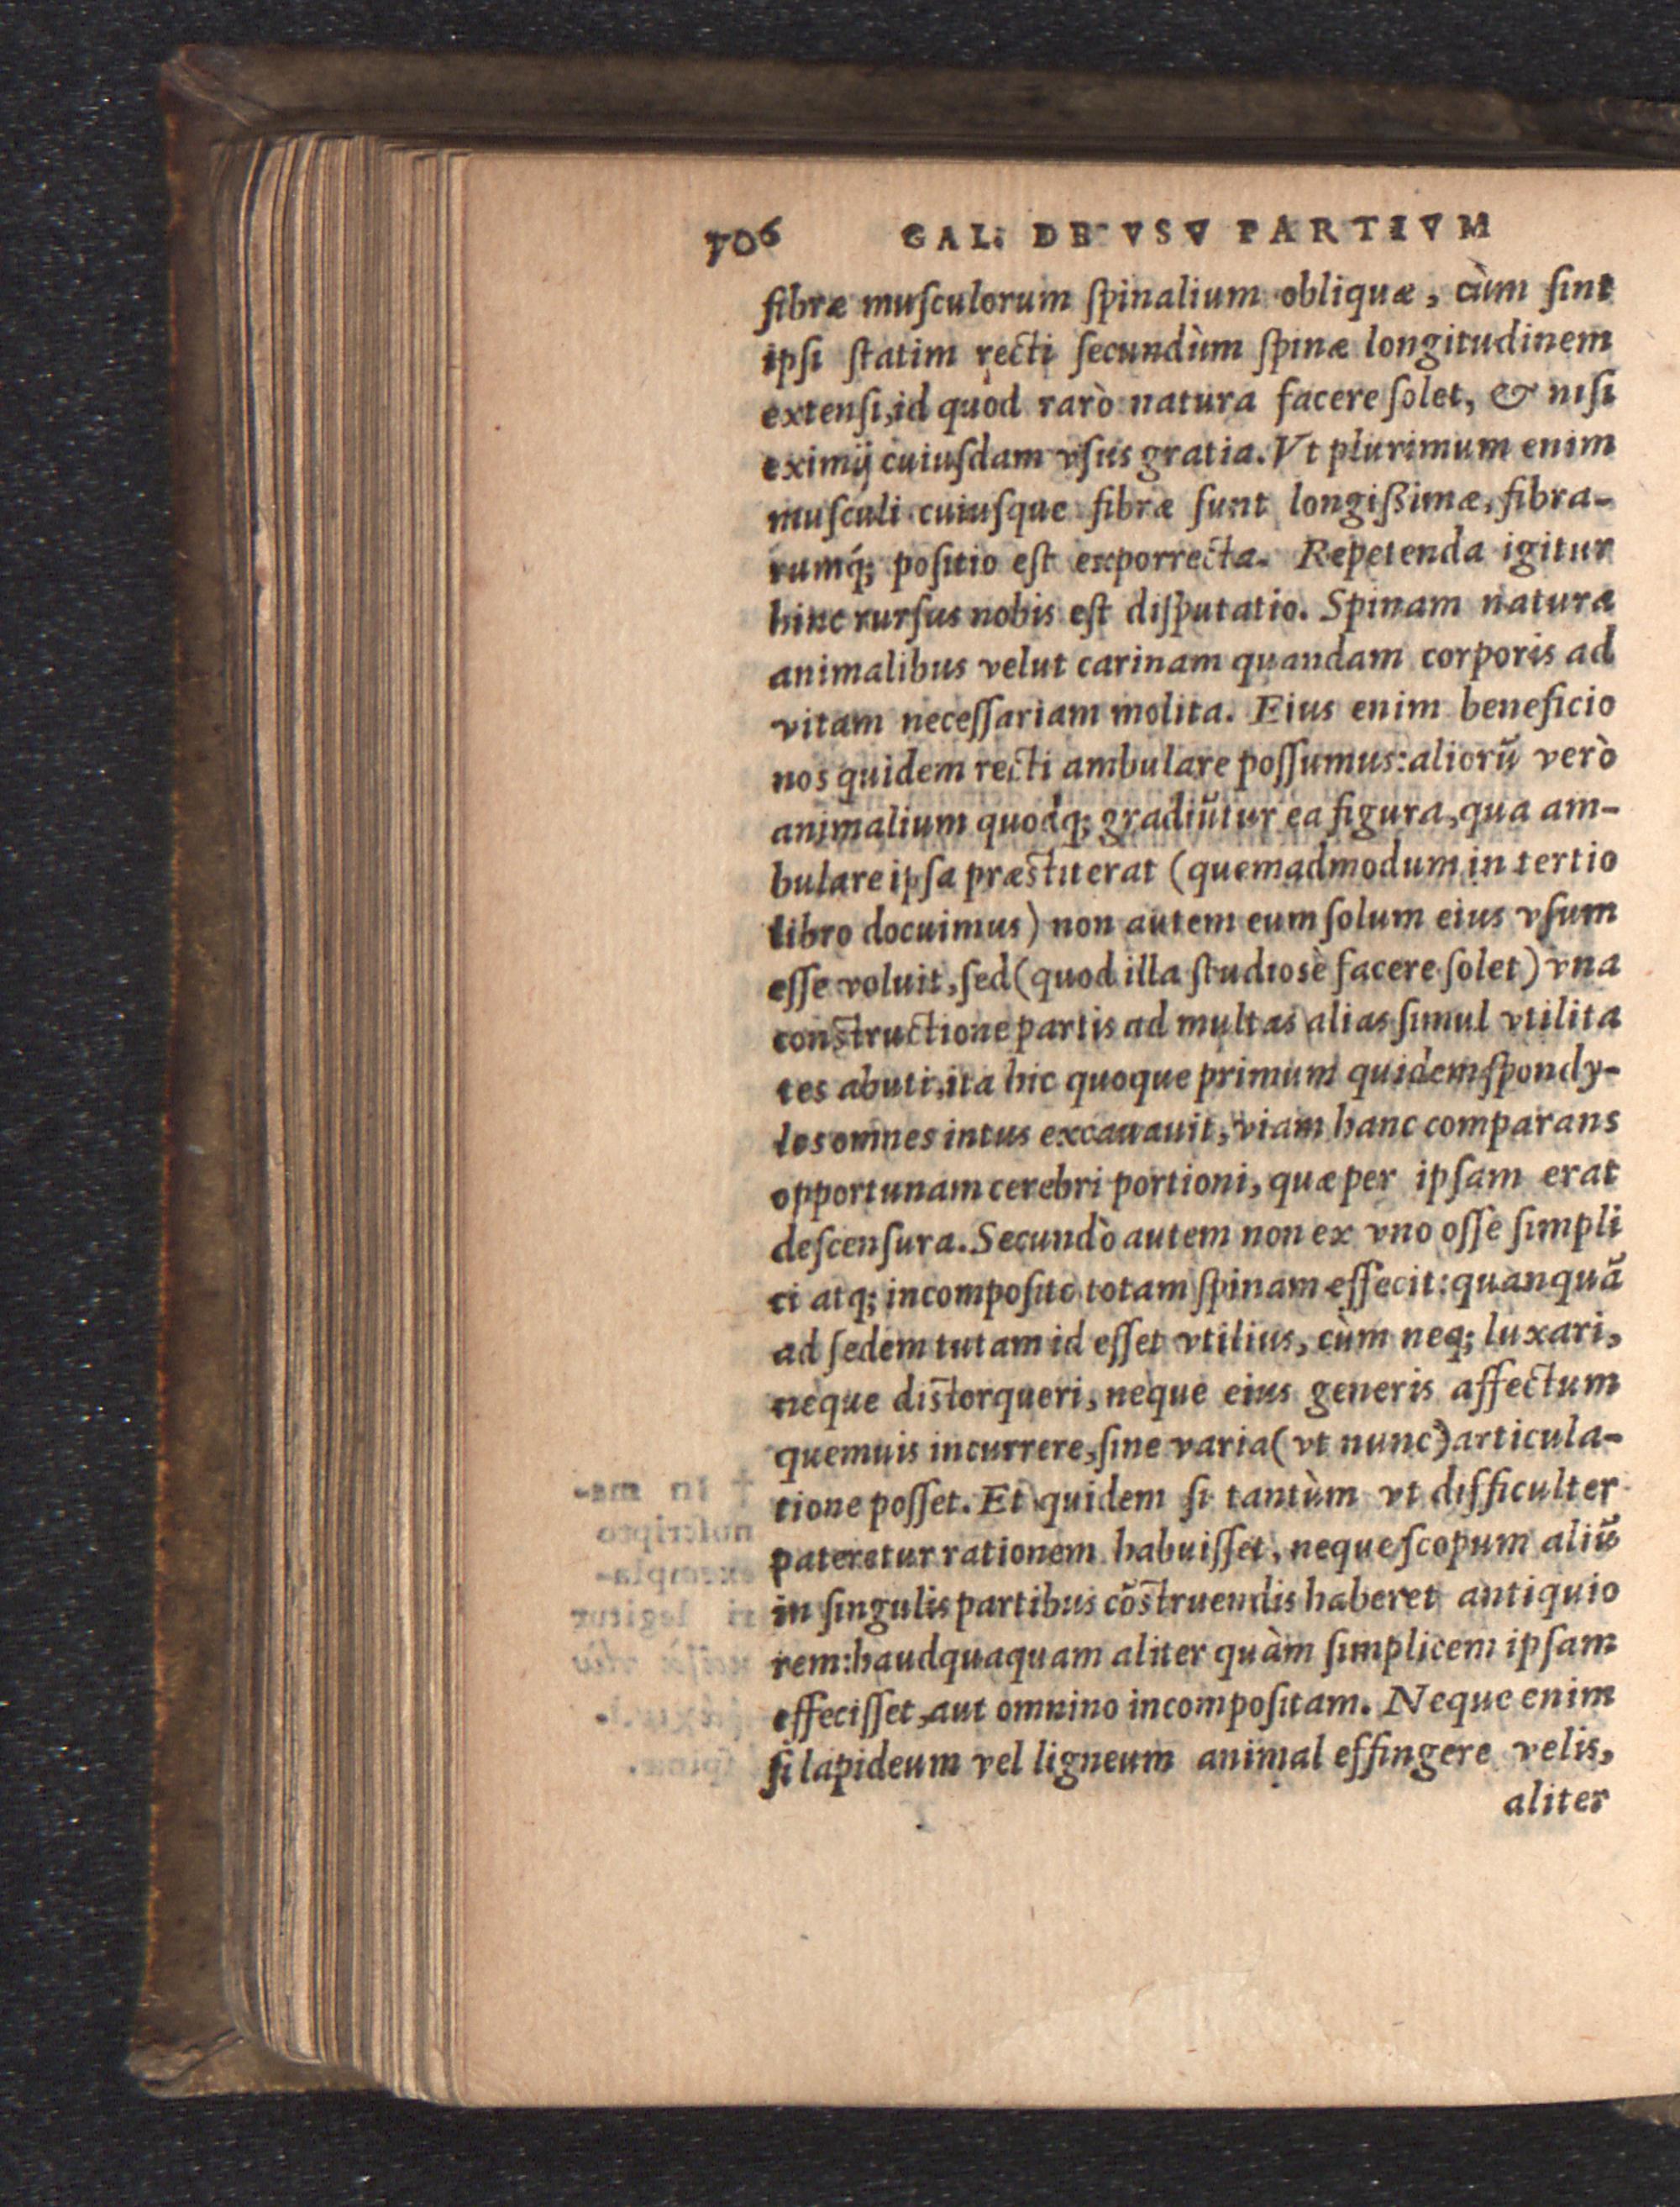 706 GAL. DE VSV PARTIVM
fibræ muſculorum ſpinalium obliquæ, cùm ſint
ipſi ſtatim recti ſecundùm ſpinæ longitudinem
extenſi, id quod rarò natura facere ſolet, & niſi
eximij cuiuſdam vſus gratia. Vt plurimum enim
muſculi cuiuſque fibræ ſunt longißimæ, fibra-
rumq́; poſitio eſt exporrecta. Repetenda igitur
hinc rurſus nobis eſt diſputatio. Spinam natura
animalibus velut carinam quandam corporis ad
vitam neceſſariam molita. Eius enim beneficio
nos quidem recti ambulare poſſumus: aliorũ verò
animalium quodq; gradiũtur ea figura, qua am-
bulare ipſa præſtiterat (quemadmodum in tertio
libro docuimus) non autem eum ſolum eius vſum
eſſe voluit, ſed (quod illa ſtudiosè facere ſolet) vna
conſtructione partis ad multas alias ſimul vtilita
tes abuti, ita hic quoque primum quidem ſpondy-
los omnes intus excauauit, viam hanc comparans
opportunam cerebri portioni, quæ per ipſam erat
deſcenſura. Secundò autem non ex vno oſſe ſimpli
ci atq; incompoſito totam ſpinam effecit: quanquã
ad ſedem tutam id eſſet vtilius, cùm neq; luxari,
neque diſtorqueri, neque eius generis affectum
quemuis incurrere, ſine varia (vt nunc) articula-
tione poſſet. Et quidem ſi tantùm vt difficulter
pateretur rationem habuiſſet, neque ſcopum aliũ
in ſingulis partibus cõſtruendis haberet antiquio
rem: haudquaquam aliter quàm ſimplicem ipſam
effeciſſet, aut omnino incompoſitam. Neque enim
ſi lapideum vel ligneum animal effingere velis,
aliter